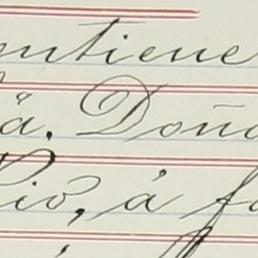 ntiene
a. Doña
Pio, á fa